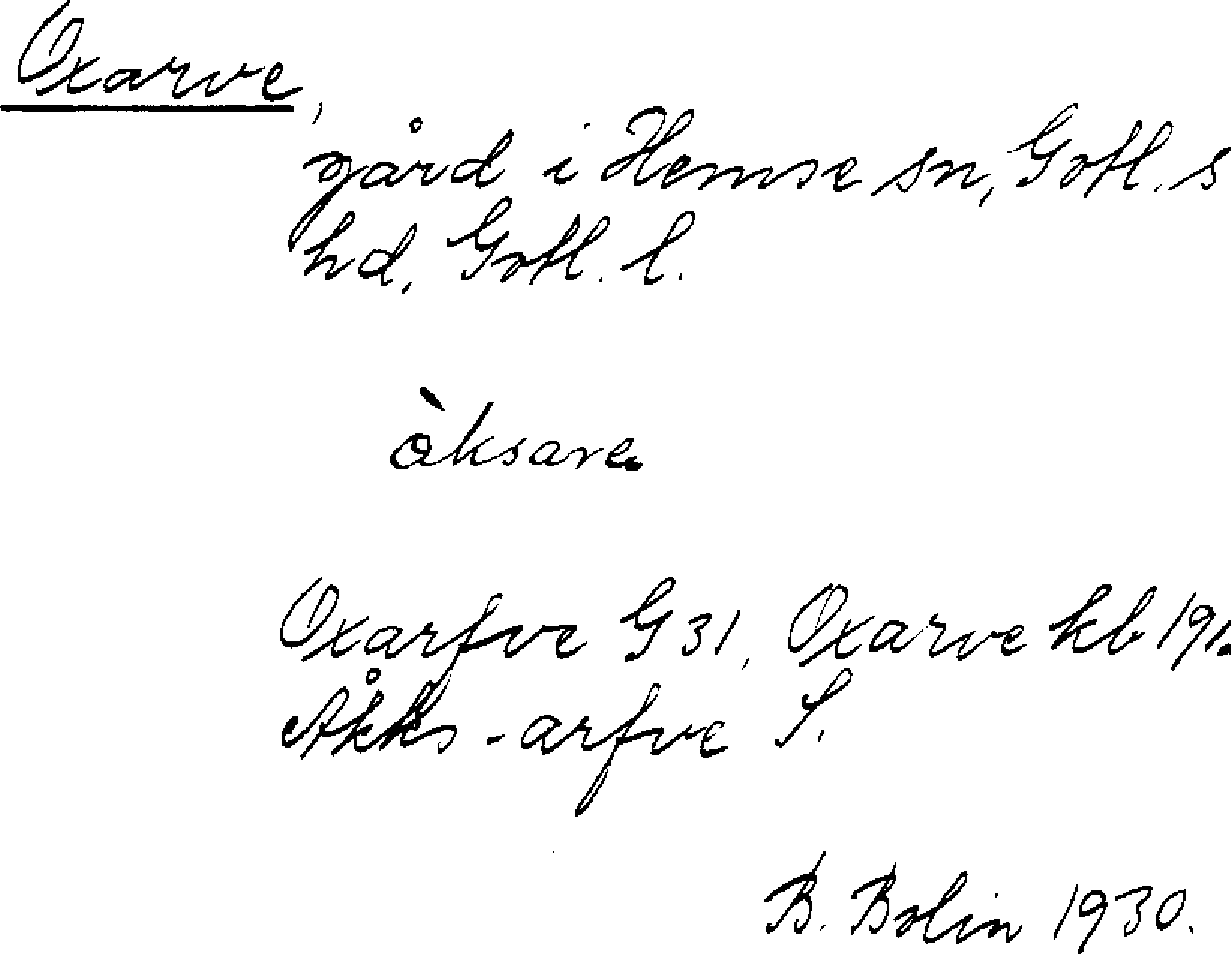 Oxarve,
gård i Hemse sn, Gotl. s
hd, Gotl. l.
òksare
Oxarfve G 31, Oxarve kb
Åkks-arfve S.
B. Bolin 1930.